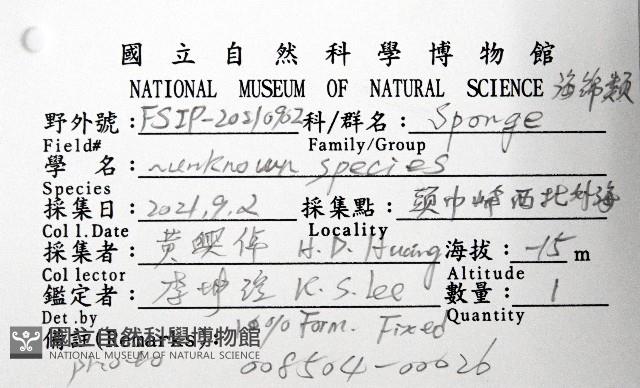 國立自然科學博物館
NATIONAL MUSEUM OF NATURAL SCIENCE 海綿類
野外號: FSIP-20210902 科/群名: Sponge
Field# Family/Group
學 名: unknown species
Species
採集日: 2021.9.2 採集點: 頭巾嶼西北外海
Coll.Date Locality
採集者: 黃興倬 H.D. Huang 海拔: -15 m
Collector Altitude
鑑定者: 李坤瑄 K.S. Lee 數量: 1
Det.by Quantity
備註(Remarks): 10% Form. Fixed
國立自然科學博物館
NATIONAL MUSEUM OF NATURAL SCIENCE
photo 008504-00026